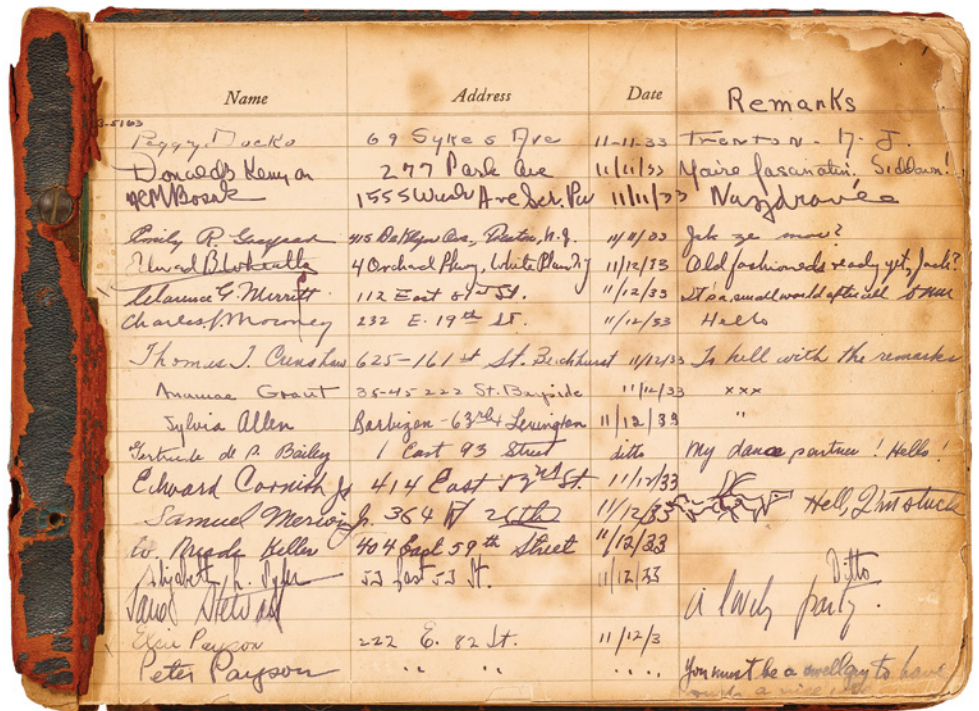 Name Address Date Remarks
3-5163
Peggy Docko 69 Sykes Ave 11-11-33 Trenton - N. J.
Donald B Kenyon 277 Park Ave 11/11/33 Youire fasanatin. Siddown!
1555 Ave 11/11/33 Nazdravée
Emily R. 415 Ave., N.J. 11/11/33 Jak ze
Edward B. Wheatley 4 Orchard Pkwy, White Plains NY 11/12/33 Old fashioneds ready yet, Jack?
Clarence G. Merritt 112 East 81st St. 11/12/33 It's a small world after all
Charles J. Moroney 232 E. 19th St. 11/12/33 Hello
Thomas J. Crenshaw 625-161st St. Beechhurst 11/12/33 To hell with the remarks
Annamae Grant 35-45-222 St. Bayside 11/12/33 xxx
Sylvia Allen Barbizon - 63rd & Lexington 11/12/33 "
Gertrude de P. Bailey 1 East 93 Street ditto My dance partner! Hello!
Edward Cornish Jr 414 East 52nd St. 11/12/33
Samuel Merwin Jr. 364 W 26th 11/12/33 Hell, I'm stuck
W. Meade Keller 404 East 59th Street 11/12/33
Elizabeth L. Tyler 53 East 53 St. 11/12/33 Ditto
Stewart A lovely party.
Elsie Payson 222 E. 82 St. 11/12/3
Peter Payson " " " " You must be a swell guy to have
such a nice